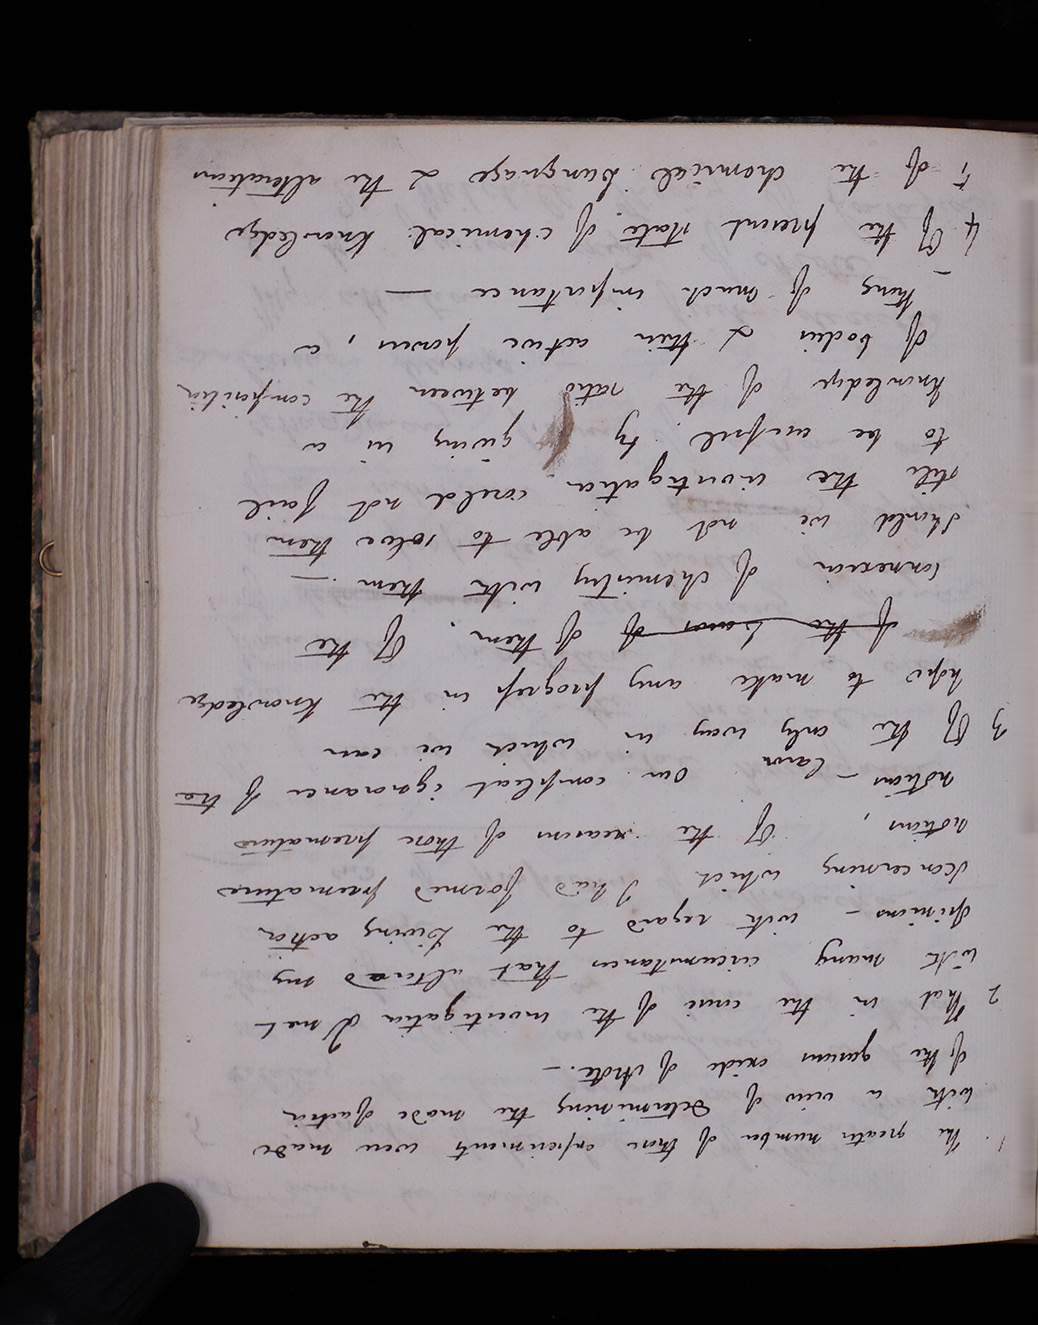 1. The greater number of these experiments were made
with a view of determining the mode of action
of the gaseous oxide of Azote. —
2 That in the course of the investigation I met
with many circumstances that altered my
opinions – with regard to the living action
concerning which I had formed premature
notions, Of the reasons of those premature
notions – Our compleat ignorance of the
laws
3 Of the only way in which we can
hope to make any progress in the knowledge
of the laws of of them. Of the
connexion of chemistry with them. —
Should we not be able to solve them
still the investigation could not fail
to be useful by giving us a
knowledge of the ratio between the composition
of bodies & their active powers, a
thing of much importance —
4 Of the present state of chemical knowledge
5 Of the chemical Language & the alterations